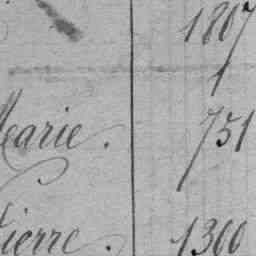 1807
1
Marie. 751
Pierre. 1300